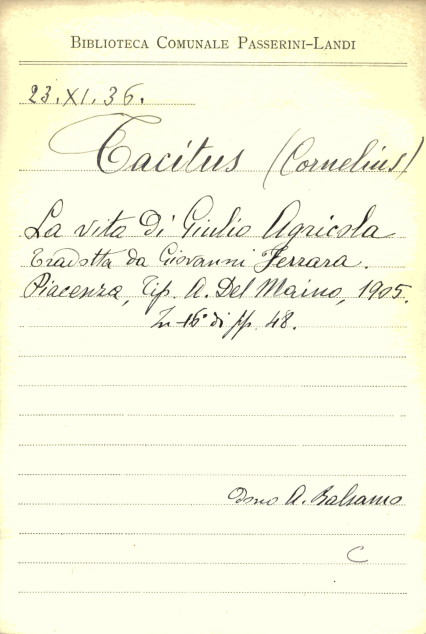 BIBLIOTECA COMUNALE PASSERINI-LANDI
23.XI.36.
Tacitus (Cornelius)
La vita di Giulio Agricola
tradotta da Giovanni Ferrara.
Piacenza, Tip. A. Del Maino, 1905.
In-16° di pp. 48.
Dono A. Balsamo
C